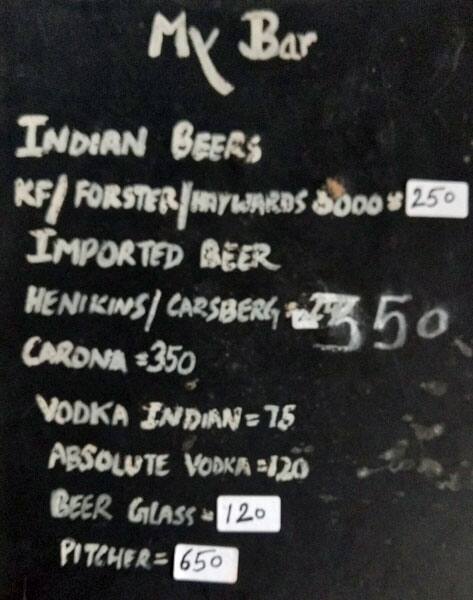 My Bar
INDIAN BEERS
KF/ FORSTER/HAYWARDS 5000 = 250
IMPORTED BEER
HENIKINS/ CARSBERG = 350
CARONA =350
VODKA INDIAN = 75
ABSOLUTE VODKA =120
BEER GLASS = 120
PITCHER = 650